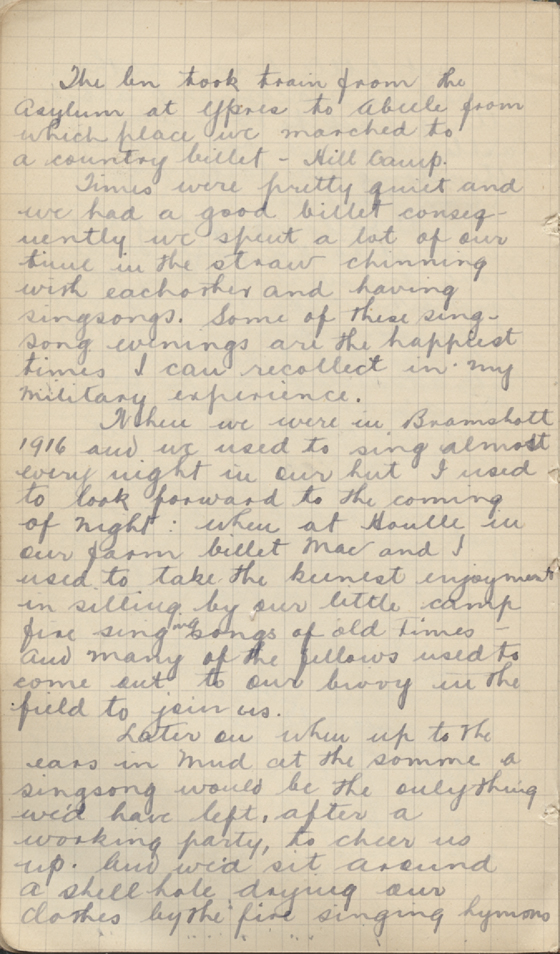 The bn took train from the
Asylum at Ypres to Abeele from
which place we marched to
a country billet - Hill Camp.
Times were pretty quiet and
we had a good billet conseq-
uently we spent a lot of our
time in the straw chinning
with eachother and having
singsongs. Some of these sing-
song evenings are the happiest
times I can recollect in my
military experience.
When we were in Bramshott
1916 and we used to sing almost
every night in our hut I used
to look forward to the coming
of night: when at Houlle in
our farm billet Mac and I
used to take the keenest enjoyment
in sitting by our little camp
fire singing songs of old times -
and many of the fellows used to
come out to our bivvy in the
field to join us.
Later on when up to the
ears in mud at the somme a
singsong would be the only thing
we'd have left, after a
working party, to cheer us
up. And we'd sit around
a shell hole drying our
clothes by the fire singing hymns